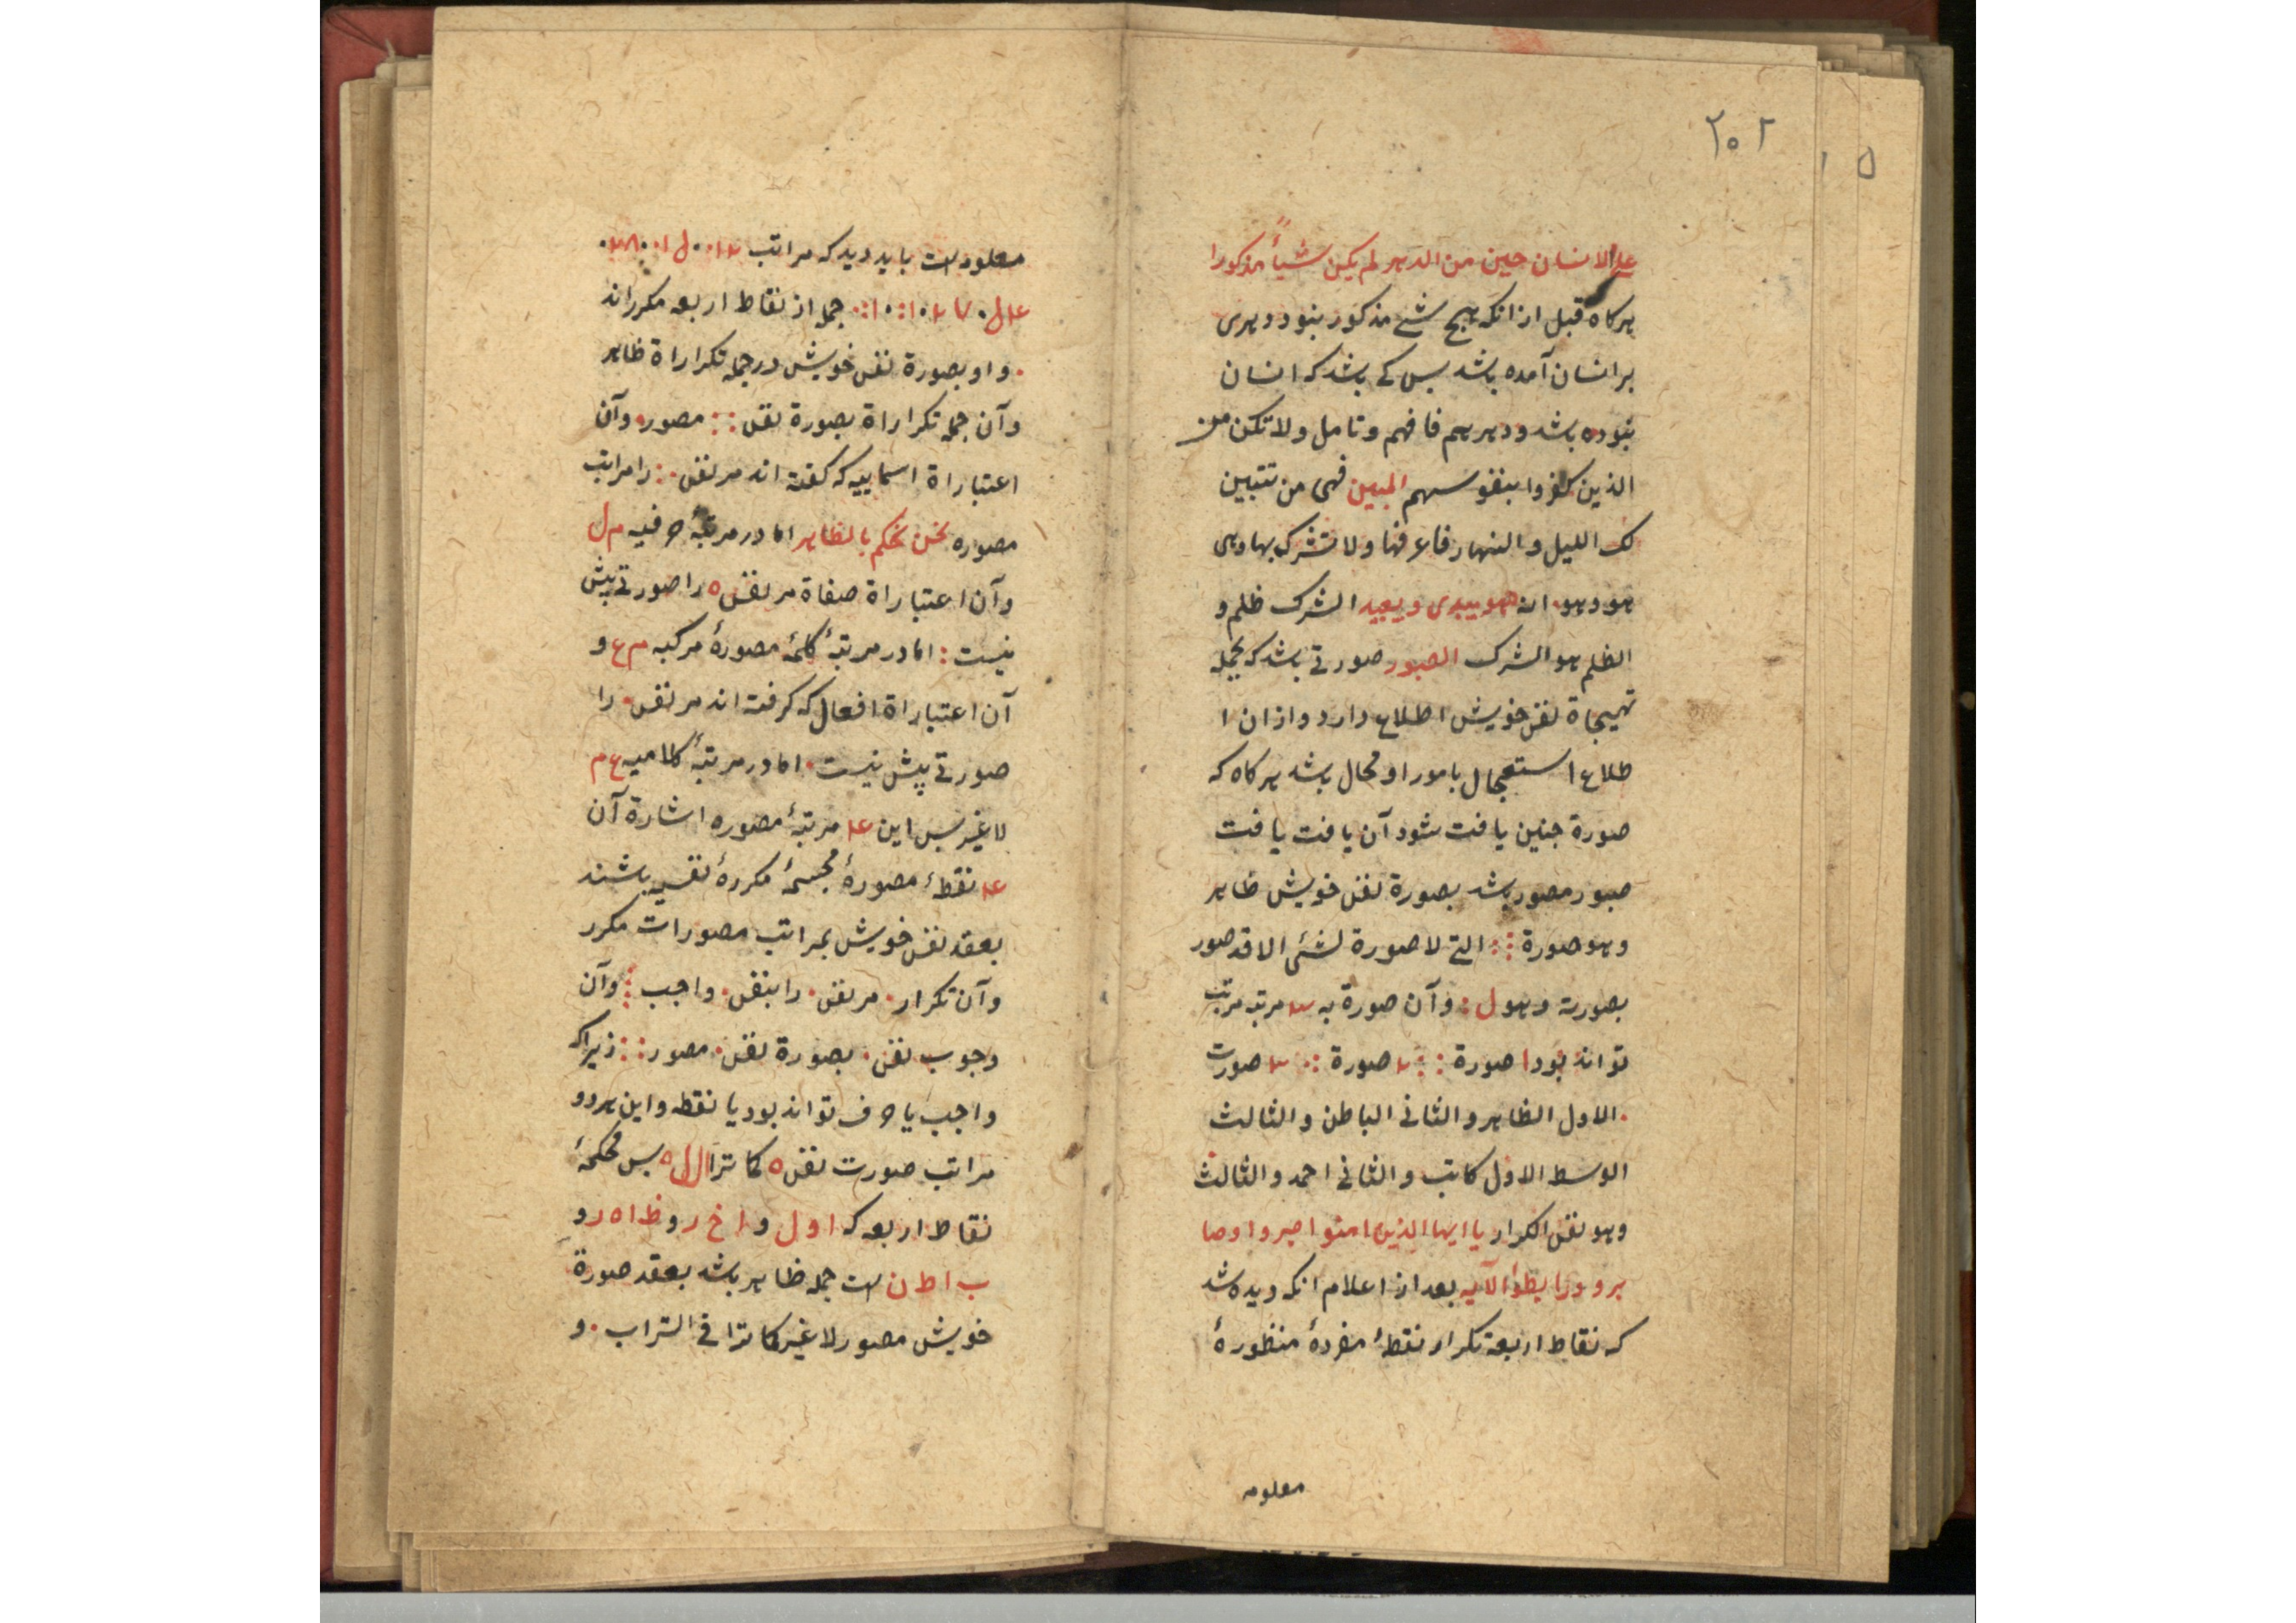 ۲۰۲
علی الانسان حین من الدهر لم یکن شیأً مذکورا
هرکاه قبل ازانکه هیچ شئ مذکور بنود دهری
بر انسان آمده باشد بس کی باشد که انسان
بنوده باشد ودهر هم فافهم وتامل ولا تکن من
الذین کفروا بنفوسهم المبین فهی من تتبین
لک اللیل والنهار فاعرفها ولا تشرک بها وهی
هو وهو انه هو یبدی ویعید الشرک ظلم و
الظلم هو الشرک الصبور صورتی باشد که بجمله
تهیجاة نفس خویش اطلاع دارد وازان ا
طلاع استعجال بامور او محال باشد هرکاه که
صورة جنین یافت شود آن یافت یافت
صبور مصور باشد بصورة نفس خویش ظاهر
وهو صورة ⁘ التی لا صورة لشئ الا قد صور
بصورته وهو ل : وآن صورة به ۳ مرتبه مرتب
تواند بود ا صورة :: ۲ صورة ∴ ۳ صورت
. الاول الظاهر والثانی الباطن والثالث
الوسط الاول کاتب والثانی احمد والثالث
وهو نفس الکرار یا ایها الذین امنوا اصبروا وصا
بروا ورابطوا الآیه بعد از اعلام انکه دیده شد
که نقاط اربعة تکرار نقطهٔ مفردهٔ منظورهٔ
معلومه
معلومه است باید دید که مراتب
جمله از نقاط اربعه مکرراند
. واو بصورة نفس خویش در جمله تکراراة ظاهر
وآن جمله تکراراة بصورة نفس :: مصوره وآن
اعتباراة اسماییه که کفته اند مر نفس : را مراتب
مصوره نحن نحکم بالظاهر اما در مرتبهٔ حرفیه م ل
وآن اعتباراة صفاة مر نفس ه را صورتی بیش
نیست : اما در مرتبهٔ کلمهٔ مصورهٔ مرکبه م ع و
آن اعتباراة افعال که کرفته اند مر نفس . را
صورتی پیش نیست . اما در مرتبهٔ کلامیه ع م
لا غیر بس این ۴ مرتبهٔ مصوره اشارة آن
۴ نقطهٔ مصورهٔ مجسمهٔ مکررهٔ نفسیه باشند
بعقد نفس خویش بمراتب مصورات مکرر
وآن تکرار . مر نفس . را بنفس . واجب ⁝ وآن
وجوب نفس . بصورة نفس . مصور :: زیرا که
واجب یا حرف تواند بود یا نقطه واین هر دو
مراتب صورت نفس ه کما ترا ال ل ه بس محکمهٔ
نقاط اربعه که ا و ل و ا خ ر و ظ ا ه ر و
ب ا ط ن است جمله ظاهر باشد بعقد صورة
خویش مصور لا غیر کما ترا فی التراب . و